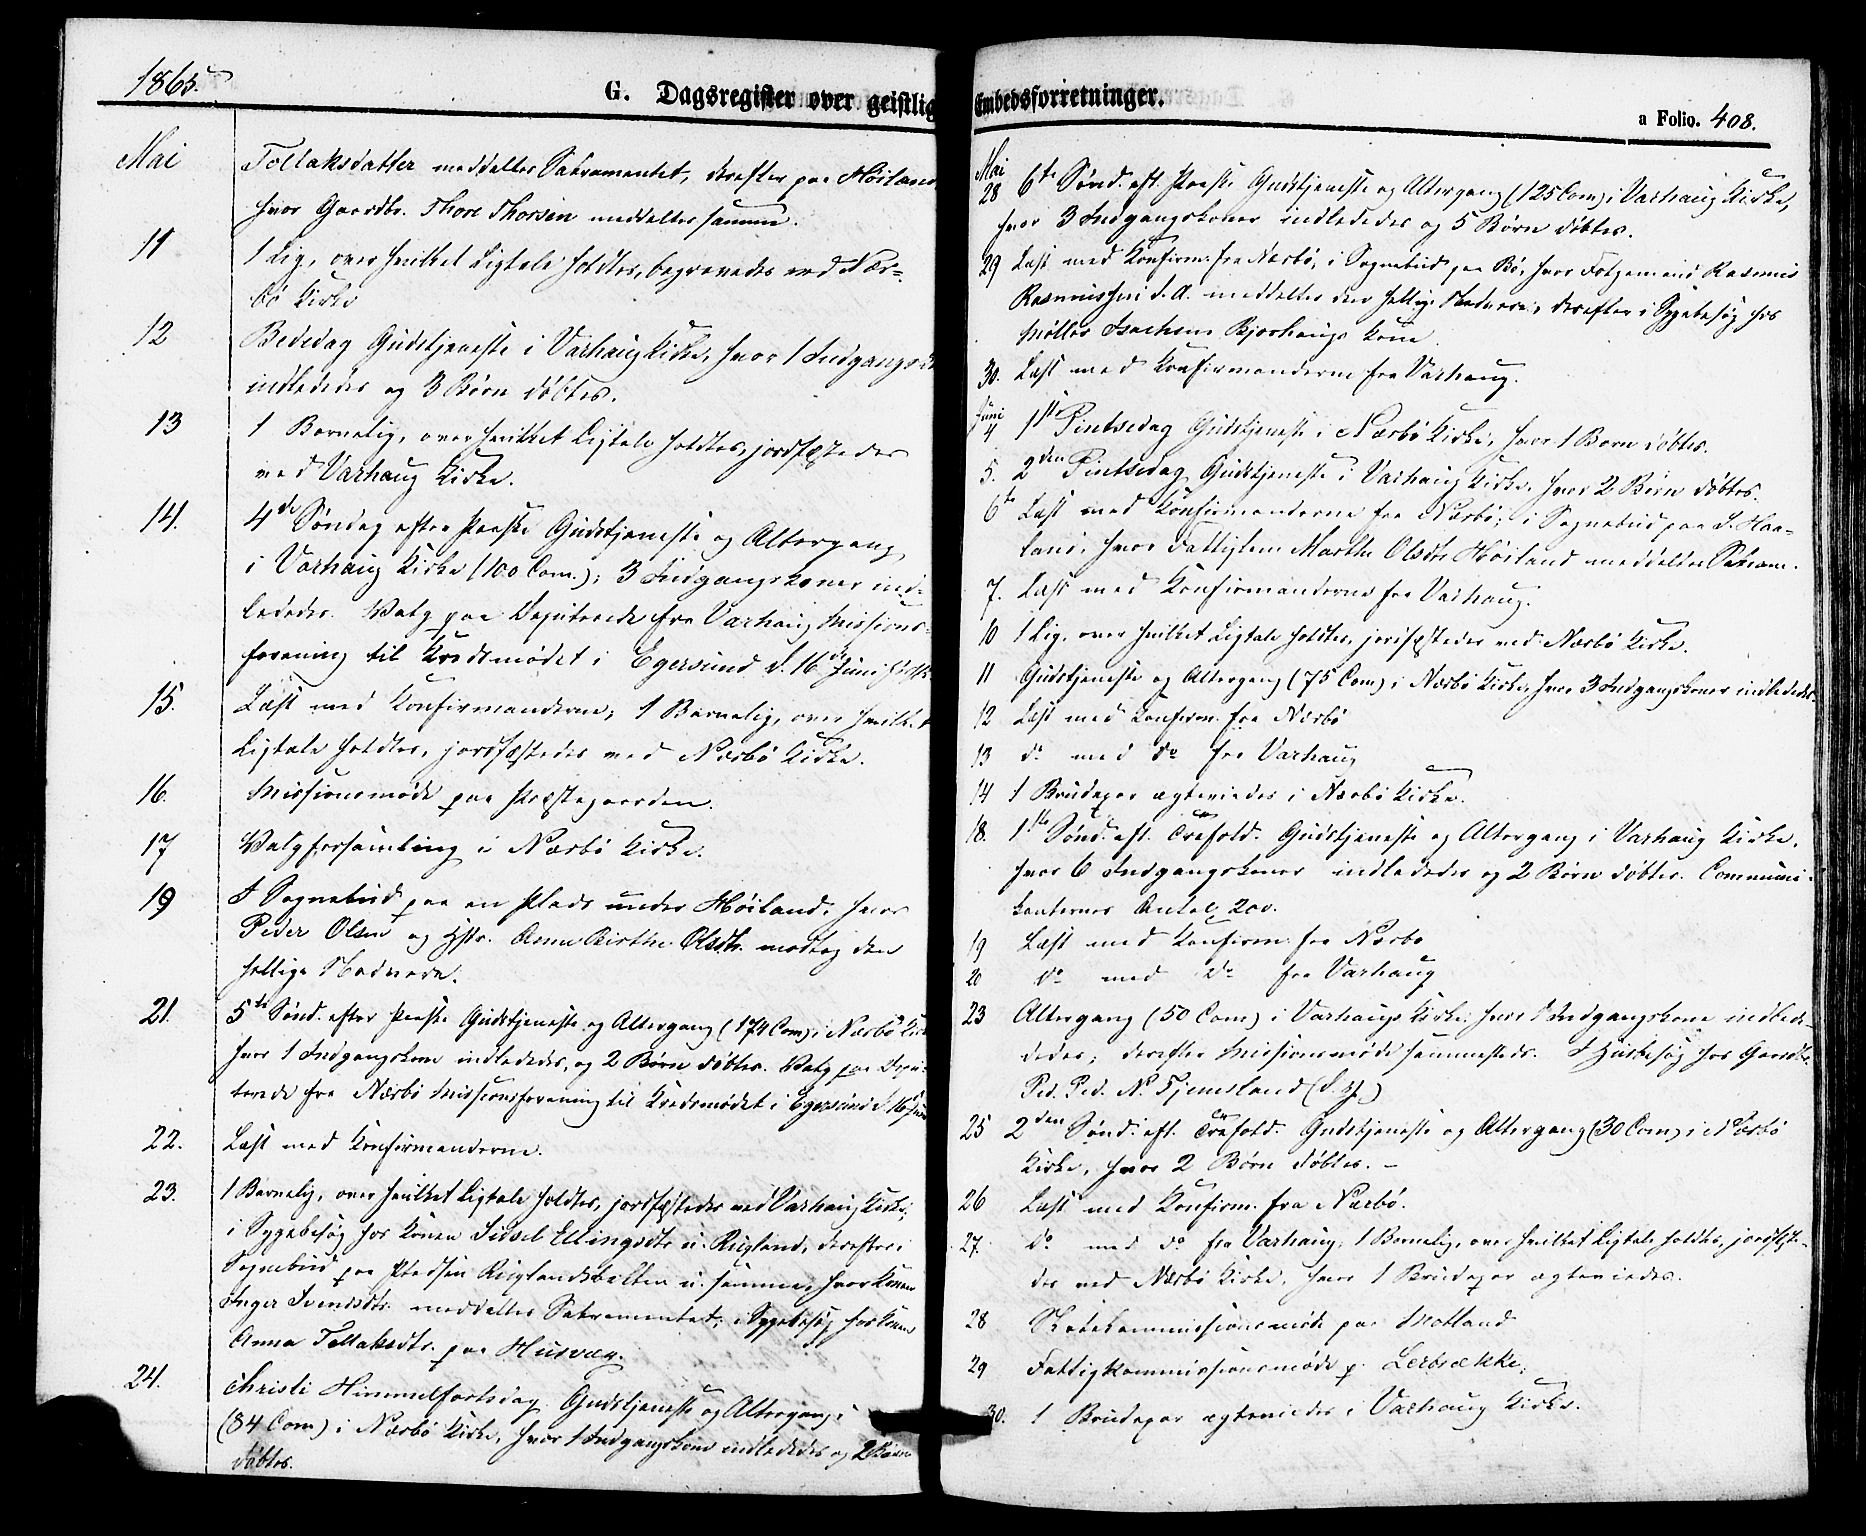 1865.
G. Dagsregister over geistlig
Mai
Tollaksdatter meddeltes Sakramentet, derefter paa Høiland,
hvor Gaardbr. Thore Thorsen meddeltes samme.
11
1 Lig, over hvilket Ligtale holdtes, begravedes ved Nær=
bö Kirke
12
Bededag Gudstjeneste i Varhaug Kirke, hvor 1 Indgangsk
indlededes og 3 Börn döbtes.
13
1 Barnelig, over hvilket Ligtale holdtes, jordfæstedes
ved Varhaug Kirke.
14.
4de Söndag efter Paaske Gudstjeneste og Altergang
i Varhaug Kirke (100 Com.); 3 Indgangskoner ind-
lededes. Valg paa Deputerede fra Varhaug Missions-
forening til Kredsmödet i Egersund d. 16de Juni
15.
Læst med Konfirmanderne; 1 Barnelig, over hvilket
Ligtale holdtes, jordfæstedes ved Nærbö Kirke.
16.
Missionsmöde paa Præstegaarden.
17
Valgforsamling i Nærbö Kirke.
19
I Sognebud paa en Plads under Höiland, hvor
Peder Olsen og Hstr. Anne Birthe Olsdtr. modtog den
hellige Nadvere.
21.
5te Sönd. efter Paaske Gudstjeneste og Altergang (174 Com) i Nærbö Kirke
hvor 1 Indgangskone indlededes, og 2 Börn döbtes. Valg paa Depu-
terede fra Nærbö Missionsforening til Kredsmödet i Egersund d. 16 Juni
22.
Læst med Konfirmanderne.
23.
1 Barnelig, over hvilket Ligtale holdtes, jordfæstedes ved Varhaug Kirke;
i Sygebesög hos Konen Sidsel Ellingsdtr u. Rugland, derefter i
Sognebud paa Pladsen Ruglandsbakken u. samme, hvor Konen
Inger Svendsdtr. meddeltes Sakramentet; i Sygebesög hos Konen
Anna Tollaksdtr. paa Husvæg.
24.
Christi Himmelfartsdag Gudstjeneste og Altergang i
(84 Com) i Nærbö Kirke, hvor 1 Indgangskone indlededes og 2 Börn
döbtes.
Embedsforretninger.
a Folio. 408.
Mai
28 6te Sönd. eft. Paaske Gudstjeneste og Altergang (125 Com) i Varhaug Kirke,
hvor 3 Indgangskoner indlededes og 5 Börn döbtes.
29 Læst med Konfirm. fra Nærbö; i Sognebud paa Bö, hvor Rasmus
Rasmussen d. A. meddeltes den hellige Nadvere, derefter i Sygebesög hos
Möller Isachsen Bjorhaugs Kone.
30. Læst med Konfirmanderne fra Varhaug.
Juni
4 1ste Pintsedag Gudstjeneste i Nærbö Kirke, hvor 1 Barn döbtes.
5. 2den Pintsedag Gudstjeneste i Varhaug Kirke, hvor 2 Börn döbtes.
6te Læst med Konfirmanderne fra Nærbö; i Sognebud paa S. Haa-
land, hvor Fattiglem Marthe Olsdtr Höiland meddeltes Sakram.
7. Læst med Konfirmanderne fra Varhaug.
10 1 Lig, over hvilket Ligtale holdtes, jordfæstedes ved Nærbö Kirke.
11 Gudstjeneste og Altergang (75 Com) i Nærbö Kirke, hvor 3 Indgangskoner indlededes.
12 Læst med Konfirm. fra Nærbö
13 do med do fra Varhaug
14 1 Brudepar ægteviedes i Nærbö Kirke.
18. 1ste Sönd. eft. Trefold. Gudstjeneste og Altergang i Varhaug Kirke,
hvor 6 Indgangskoner indlededes og 2 Börn döbtes. Communi-
kanternes Antal 200.
19 Læst med Konfirm. fra Nærbö
20 do med do fra Varhaug
23 Altergang (50 Com) i Varhaugs Kirke, hvor 1 Indgangskone indle-
dedes; derefter Missionsmöde sammesteds. I Husbesög hos Gaardbr.
Ped. Ped. N. Tjemsland (d. y.)
25 2den Sönd. eft. Trefold. Gudstjeneste og Altergang (30 Com) i Nærbö
Kirke, hvor 2 Börn döbtes. -
26 Læst med Konfirm. fra Nærbö.
27. do med do fra Varhaug; 1 Barnelig, over hvilket Ligtale holdtes, jordfæste-
des ved Nærbö Kirke, hvor 1 Brudepar ægteviedes.
28 Skolekommissionsmöde paa Motland
29 Fattigkommissionsmöde p. Lerbrække;
30. 1 Brudepar ægteviedes i Varhaug Kirke.